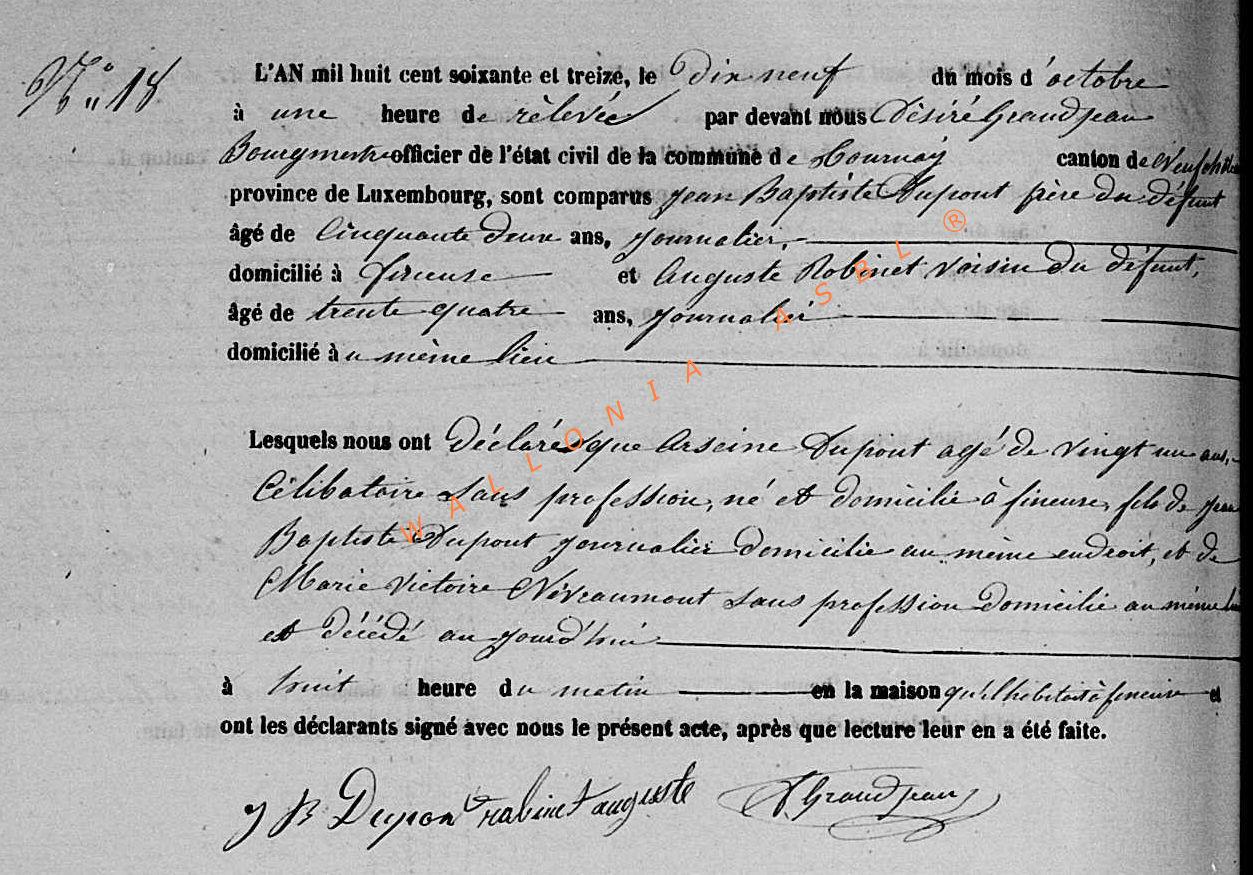 N° 18
L'AN mil huit cent soixante et treize, le Dix neuf du mois d'octobre
à une heure de rélevée par devant nous Désiré Grandjean
Bourgmestre officier de l'état civil de la commune de Tournay canton de Neufchâteau
province de Luxembourg, sont comparus Jean Baptiste Dupont père du défunt
âgé de Cinquante deux ans, journalier,
domicilié à et Auguste Robinet voisin du défunt,
âgé de trente quatre ans, journalier
domicilié au même lieu
Lesquels nous ont déclarés que Arseine Dupont agé de vingt un ans,
Célibataire sans profession, né et domicilié à fineuse, fils de Jean
Baptiste Dupont journalier domicilié au même endroit, et de
Marie Victoire Névraumont sans profession domicilié au même lieu
est décédé au jourd'hui
à huit heure du matin en la maison qu'il habitait à et
ont les déclarants signé avec nous le présent acte, après que lecture leur en a été faite.
J B Dupont rabinet auguste D. Grandjean
WALLONIA ASBL ®